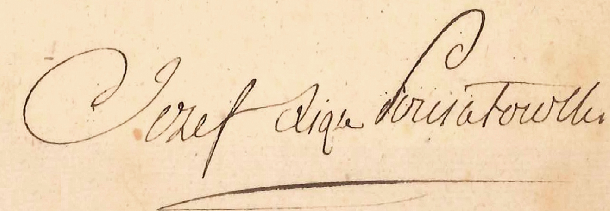 Jozef Xiąże Poniatowski